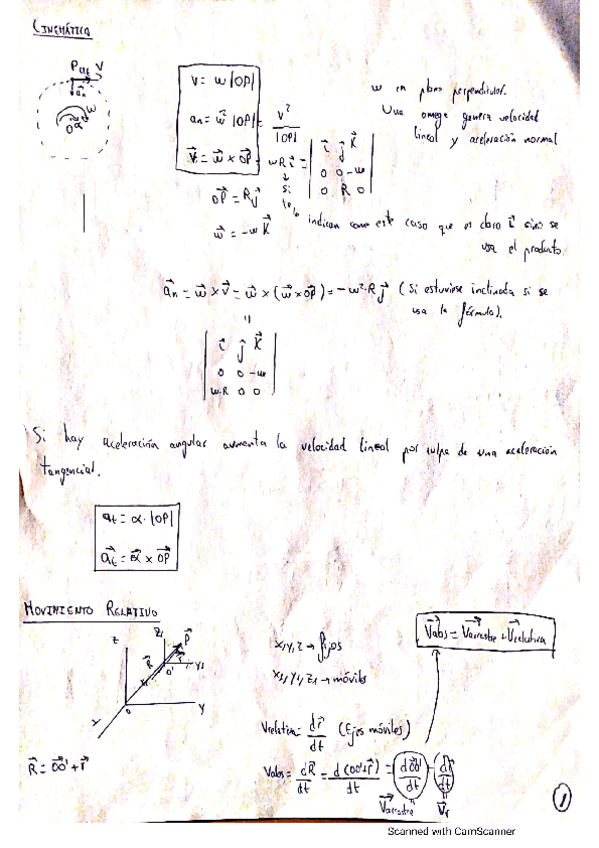 CINEMÁTICA
P at V
an
w
O α
V = w |OP|
an = w² |OP| = V² / |OP|
V⃗ = w⃗ × OP⃗ = wR i⃗ = | i⃗ j⃗ K⃗ |
| 0 0 -w |
| 0 R 0 |
OP⃗ = R j⃗
w⃗ = -w K⃗
w en plano perpendicular.
Una omega genera velocidad
lineal y aceleración normal
si
lo indican como este caso que es claro i⃗ sino se
usa el producto.
an⃗ = w⃗ × V⃗ = w⃗ × (w⃗ × OP⃗) = -w²·R j⃗ (Si estuviese inclinada si se
usa la fórmula).
=
| i⃗ j⃗ K⃗ |
| 0 0 -w |
| w·R 0 0 |
Si hay aceleración angular aumenta la velocidad lineal por culpa de una aceleración
tangencial.
at = α · |OP|
at⃗ = α⃗ × OP⃗
MOVIMIENTO RELATIVO
Z Z1 P
R⃗ r⃗ O' Y1
X1
O Y
X
R⃗ = OO'⃗ + r⃗
X,Y,Z → fijos
X1,Y1,Z1 → móviles
V⃗abs = V⃗arrastre + V⃗relativa
Vrelativa = dr⃗/dt (Ejes móviles)
Vabs = dR⃗/dt = d(OO'+r⃗)/dt = dOO'⃗/dt + dr⃗/dt
V⃗arrastre V⃗r
1
Scanned with CamScanner